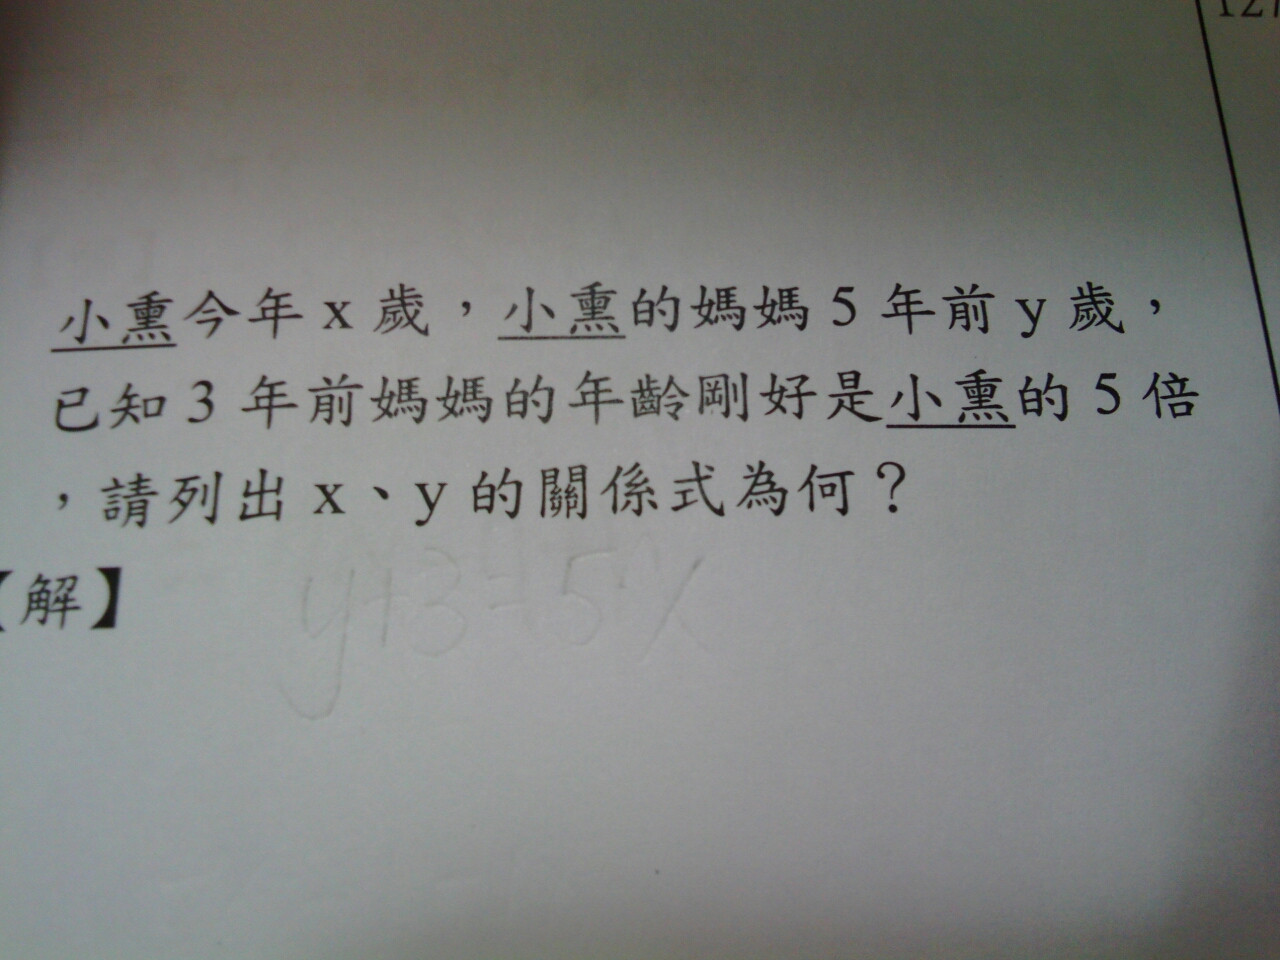 127
小熏今年 x 歲，小熏的媽媽 5 年前 y 歲，
已知 3 年前媽媽的年齡剛好是小熏的 5 倍
，請列出 x、y 的關係式為何？
【解】
y+3=5x